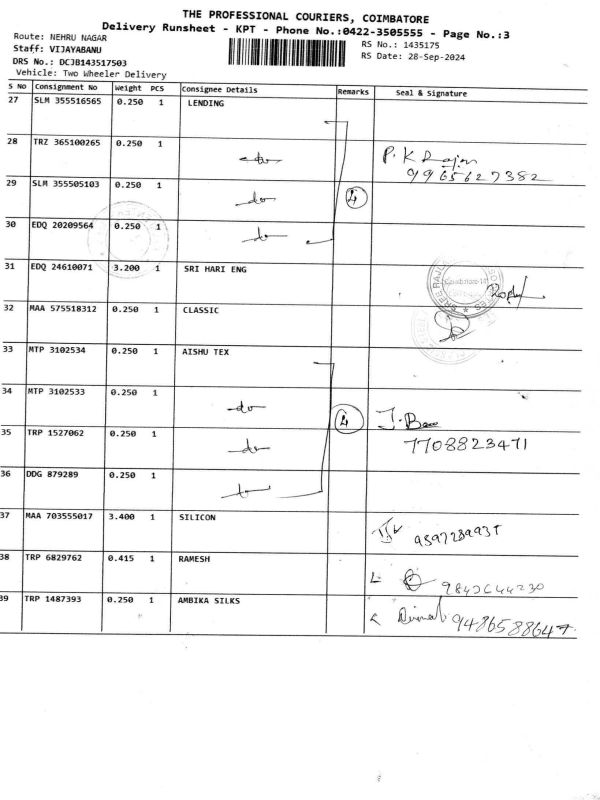 THE PROFESSIONAL COURIERS, COIMBATORE
Delivery Runsheet - KPT - Phone No.:0422-3505555 - Page No.:3
Route: NEHRU NAGAR
Staff: VIJAYABANU
DRS No.: DCJB143517503
Vehicle: Two Wheeler Delivery
RS No.: 1435175
RS Date: 28-Sep-2024
S No Consignment No Weight PCS Consignee Details Remarks Seal & Signature
27 SLM 355516565 0.250 1 LENDING
28 TRZ 365100265 0.250 1 do P. K Rajan
9965627382
29 SLM 355505103 0.250 1 do 4
30 EDQ 20209564 0.250 1 do
31 EDQ 24610071 3.200 1 SRI HARI ENG
32 MAA 575518312 0.250 1 CLASSIC
33 MTP 3102534 0.250 1 AISHU TEX
34 MTP 3102533 0.250 1 do 4
35 TRP 1527062 0.250 1 do 7708823471
36 DDG 879289 0.250 1 do
37 MAA 703555017 3.400 1 SILICON
38 TRP 6829762 0.415 1 RAMESH
39 TRP 1487393 0.250 1 AMBIKA SILKS 9486588647